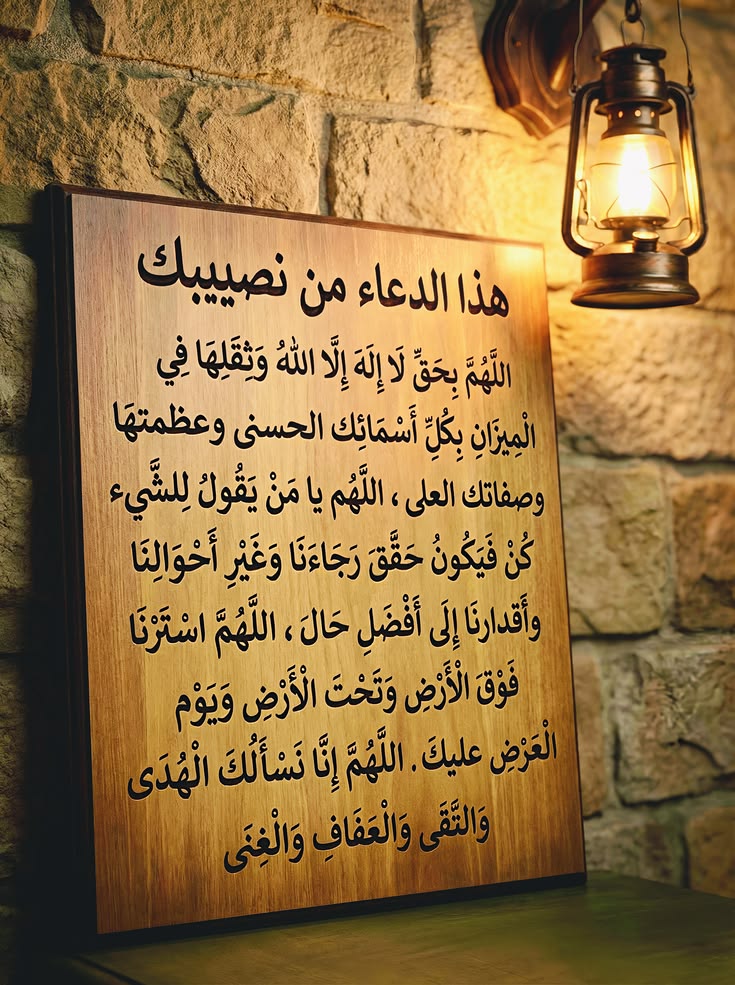 هذا الدعاء من نصييبك
اللَّهُمَّ بِحَقِّ لَا إِلَهَ إِلَّا اللهُ وَثِقَلِهَا فِي
الْمِيزَانِ بِكُلِّ أَسْمَائِك الحسنى وعظمتهَا
وصفاتك العلى ، اللَّهُم يا مَنْ يَقُولُ لِلشَّيء
كُنْ فَيَكُونُ حَقَّقَ رَجَاءَنَا وَغَيْرِ أَحْوَالِنَا
وأَقدارنَا إِلَى أَفْضَلِ حَالَ ، اللَّهُمَّ اسْتَرْنَا
فَوْقَ الْأَرْضِ وَتَحْتَ الْأَرْضِ وَيَوْم
الْعَرْضِ عليكَ. اللَّهُمَّ إِنَّا نَسْأَلُكَ الْهُدَى
وَالتَّقَى وَالْعَفَافِ وَالْغِنَى